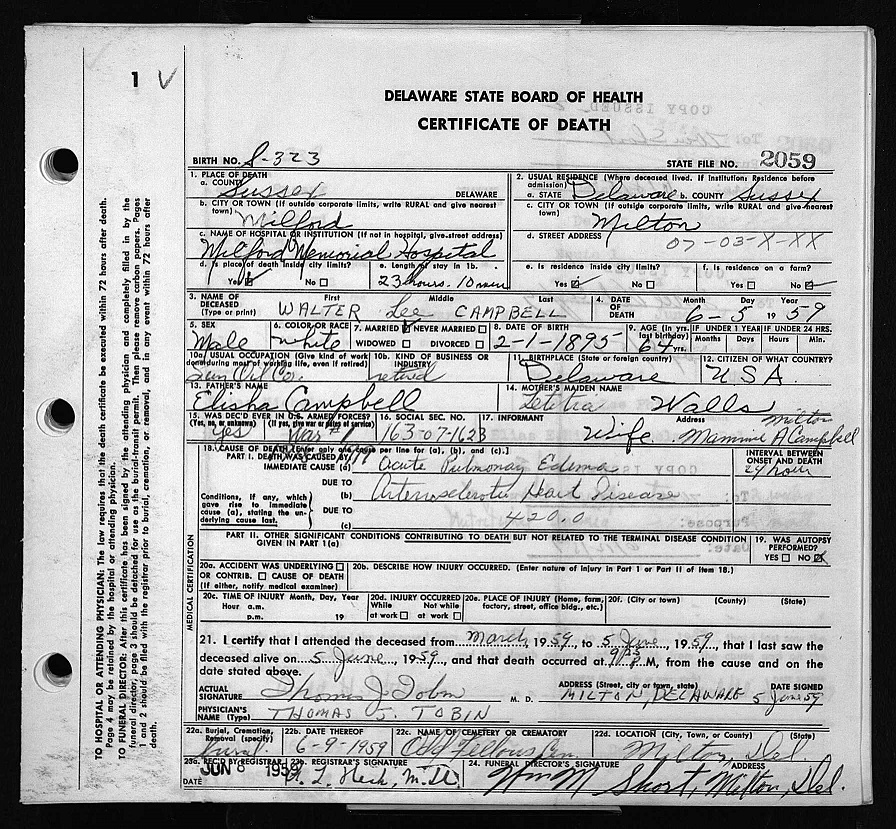 1 V
DELAWARE STATE BOARD OF HEALTH
CERTIFICATE OF DEATH
BIRTH NO. S-323
STATE FILE NO. 2059
1. PLACE OF DEATH
a. COUNTY Sussex DELAWARE
b. CITY OR TOWN (If outside corporate limits, write RURAL and give nearest town) Milford
c. NAME OF HOSPITAL OR INSTITUTION (If not in hospital, give street address)
Milford Memorial Hospital
d. Is place of death inside city limits? Yes No
e. Length of stay in 1b. 23 hours. 10 min
2. USUAL RESIDENCE (Where deceased lived. If institution: Residence before admission)
a. STATE Delaware b. COUNTY Sussex
c. CITY OR TOWN (If outside corporate limits, write RURAL and give nearest town) Milton
d. STREET ADDRESS 07-03-X-XX
e. Is residence inside city limits? Yes No
f. Is residence on a farm? Yes No
3. NAME OF DECEASED (Type or print) First Middle Last
WALTER Lee CAMPBELL
4. DATE OF DEATH Month Day Year
6-5 1959
5. SEX Male
6. COLOR OR RACE White
7. MARRIED NEVER MARRIED WIDOWED DIVORCED
8. DATE OF BIRTH 2-1-1895
9. AGE (In yrs. last birthday) 64 yrs
IF UNDER 1 YEAR Months Days
IF UNDER 24 HRS. Hours Min.
10a. USUAL OCCUPATION (Give kind of work done during most of working life, even if retired) Sun Oil Co.
10b. KIND OF BUSINESS OR INDUSTRY retired
11. BIRTHPLACE (State or foreign country) Delaware
12. CITIZEN OF WHAT COUNTRY? USA.
13. FATHER'S NAME Elisha Campbell
14. MOTHER'S MAIDEN NAME Letitia Walls
15. WAS DEC'D EVER IN U.S. ARMED FORCES? (Yes, no, or unknown) (If yes, give war or dates of service) yes War #1
16. SOCIAL SEC. NO. 163-07-1623
17. INFORMANT Address Milton
Wife. Mammie A Campbell
18. CAUSE OF DEATH [Enter only one cause per line for (a), (b), and (c).]
PART I. DEATH WAS CAUSED BY:
IMMEDIATE CAUSE (a) Acute Pulmonary Edema
INTERVAL BETWEEN ONSET AND DEATH 24 hours
DUE TO (b) Arteriosclerotic Heart Disease
Conditions, if any, which gave rise to immediate cause (a), stating the underlying cause last.
DUE TO (c) 420.0
PART II. OTHER SIGNIFICANT CONDITIONS CONTRIBUTING TO DEATH BUT NOT RELATED TO THE TERMINAL DISEASE CONDITION GIVEN IN PART 1(a)
19. WAS AUTOPSY PERFORMED? YES NO
MEDICAL CERTIFICATION
20a. ACCIDENT WAS UNDERLYING OR CONTRIB. CAUSE OF DEATH (If either, notify medical examiner)
20b. DESCRIBE HOW INJURY OCCURRED. (Enter nature of injury in Part 1 or Part II of item 18.)
20c. TIME OF INJURY Month, Day, Year
Hour a.m. p.m. 19
20d. INJURY OCCURRED While at work Not while at work
20e. PLACE OF INJURY (Home, farm, factory, street, office bldg., etc.)
20f. (City or town) (County) (State)
21. I certify that I attended the deceased from March, 1959, to 5 June, 1959, that I last saw the
deceased alive on 5 June, 1959, and that death occurred at 9:25 P.M, from the cause and on the
date stated above.
ACTUAL SIGNATURE Thomas J Tobin M. D.
ADDRESS (Street, city or town, state) DATE SIGNED
MILTON, DELAWARE 5 June 59
PHYSICIAN'S NAME (Type) THOMAS J. TOBIN
22a. Burial, Cremation, Removal (specify) Burial
22b. DATE THEREOF 6-9-1959
22c. NAME OF CEMETERY OR CREMATORY Odd Fellows Cem
22d. LOCATION (City, Town, or County) (State) Milton, Del.
23a. REC'D BY REGISTRAR DATE JUN 8 1959
23b. REGISTRAR'S SIGNATURE
24. FUNERAL DIRECTOR'S SIGNATURE ADDRESS
Wm M Short, Milton, Del.
TO HOSPITAL OR ATTENDING PHYSICIAN: The law requires that the death certificate be executed within 72 hours after death.
Page 4 may be retained by the hospital or attending physician.
TO FUNERAL DIRECTOR: After this certificate has been signed by the attending physician and completely filled in by the
funeral director, page 3 should be detached for use as the burial-transit permit. Then please remove carbon papers. Pages
1 and 2 should be filed with the registrar prior to burial, cremation, or removal, and in any event within 72 hours after
death.